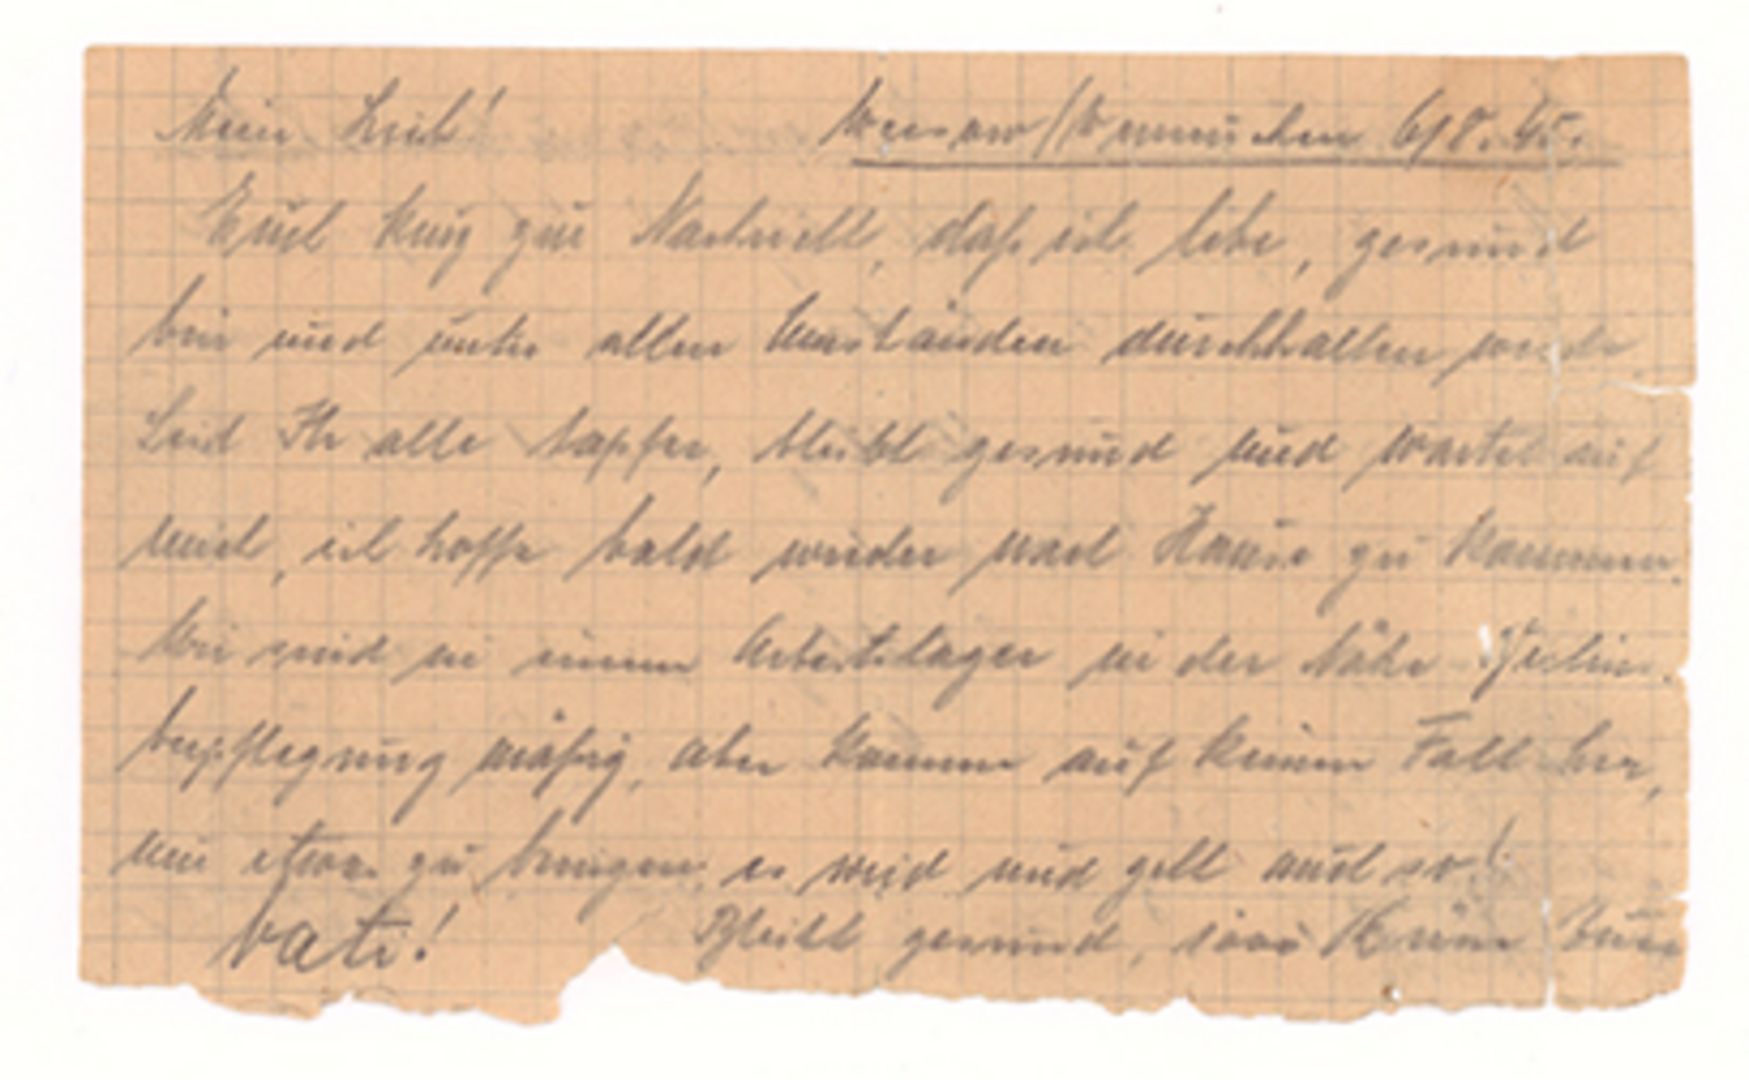 Mein Lieb! Weesow/Werneuchen 6/8. 45.
Euch kurz zur Nachricht, daß ich lebe, gesund
bin und unter allen Umständen durchhalten werde.
Seid Ihr alle tapfer, bleibt gesund und wartet auf
mich, ich hoffe bald wieder nach Hause zu kommen.
Wir sind in einem Arbeitslager in der Nähe Berlins.
Verpflegung mäßig, aber komme auf keinen Fall her,
um etwas zu bringen, es wird und geht auch so!
Vati! Bleibt gesund, 1000 Küsse Euer